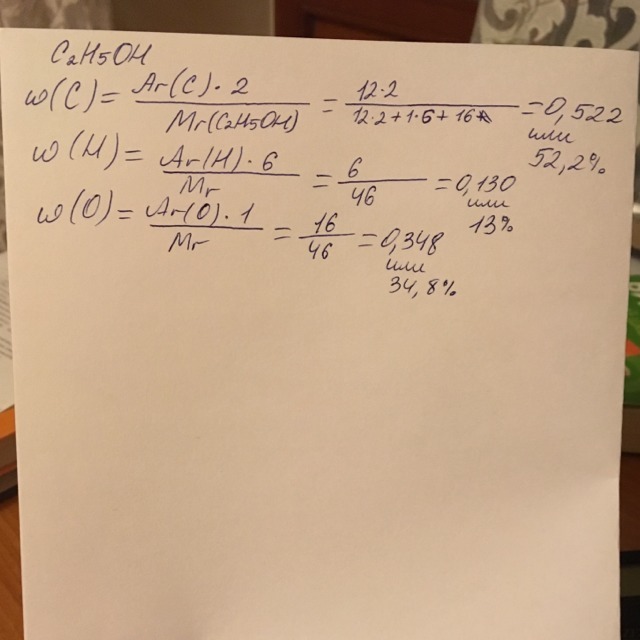 C2H5OH
w(C) = Ar(C)·2 / Mr(C2H5OH) = 12·2 / 12·2+1·6+16 = 0,522
или
52,2%
w(H) = Ar(H)·6 / Mr = 6 / 46 = 0,130
или
13%
w(O) = Ar(O)·1 / Mr = 16 / 46 = 0,348
или
34,8%